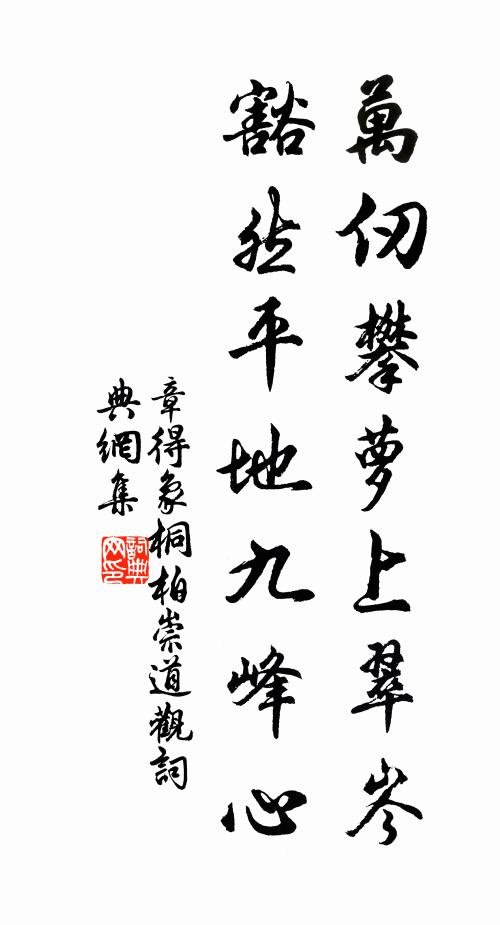 萬仞攀萝上翠岑
豁然平地九峰心
章得象桐柏崇道觀詞
典網集
詞典
网印